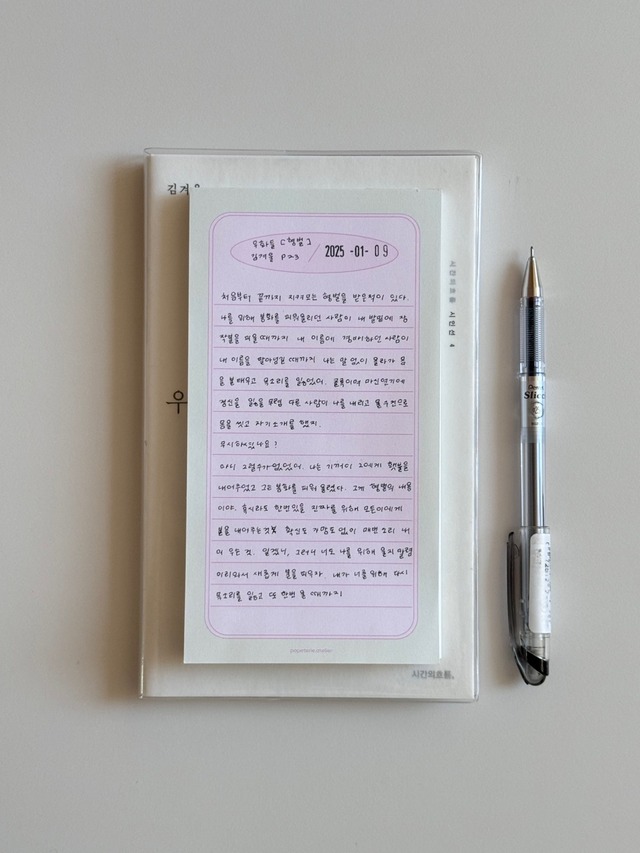 김겨울
우화들 [형벌]
김겨울 p23
2025 -01- 09
처음부터 끝까지 지켜보는 형벌을 받은적이 있다.
나를 위해 봉화를 피워올리던 사람이 내 발밑에 장
작불을 피울때까지 내 이름에 경배하던 사람이
내 이름을 팔아넘길 때까지 나는 말 없이 올라가 몸
을 불태우고 목소리를 잃었어. 불꽃이며 마신연기에
정신을 잃었을 무렵 다른 사람이 나를 내리고 물수건으로
몸을 씻고 자기소개를 했지.
무시하셨나요?
아니 그럴수가없었어. 나는 기꺼이 그에게 횃불을
내어주었고 그는 봉화를 피워 올렸다. 그게 형벌의 내용
이야. 혹시라도 한번있을 진짜를 위해 모든이에게
불을 내어주는것
확신도 가망도 없이 매번 소리 내
어 우는 것. 알겠니, 그러니 너도 나를 위해 울지말렴
이리와서 새롭게 불을 피우자. 내가 너를위해 다시
목소리를 잃고 또 한번 울 때까지
paperrielle.atelier
우
시간의흐름 시인선 4
시간의흐름.
Slicci